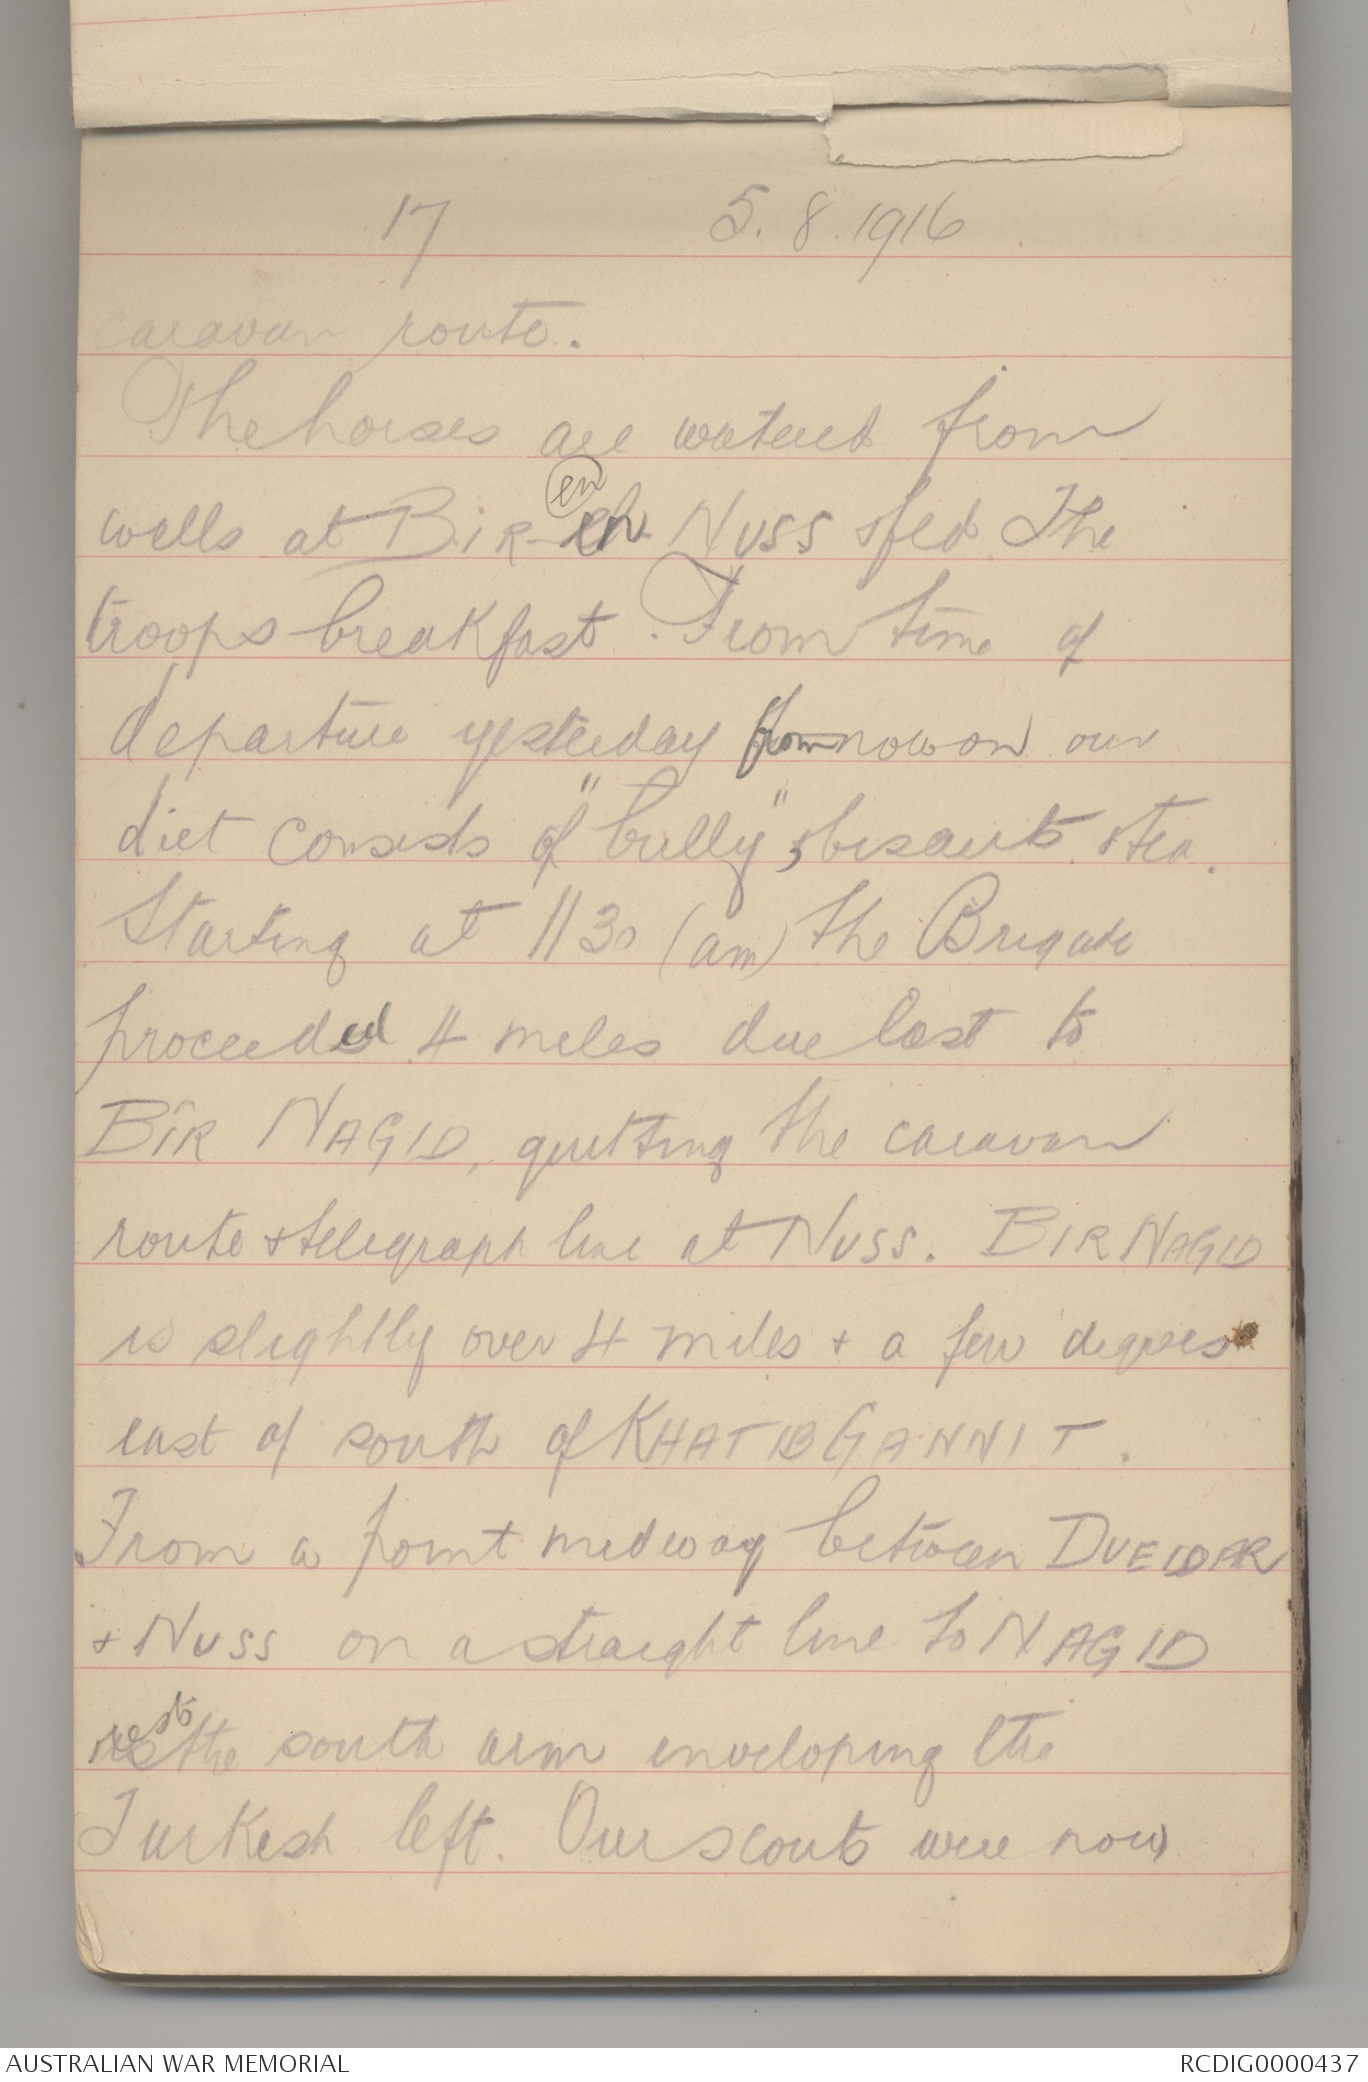 17 5.8.1916
caravan route.
The horses are watered from
(en)
wells at BIR-en-NUSS & fed. The
troops breakfast. From time of
departure yesterday from now on our
diet consists of "bully", & biscuits & tea.
Starting at 1130 (am) the Brigade
proceeded 4 miles due East to
BIR NAGID, quitting the caravan
route & telegraph line at NUSS. BIR NAGID
is slightly over 4 miles & a few degrees
east of south of KHATIB GANNIT.
From a point midway between DUEIDAR
& NUSS on a straight line to NAGID
the south arm enveloping the
Turkish left. Our scouts were now
AUSTRALIAN WAR MEMORIAL RCDIG0000437